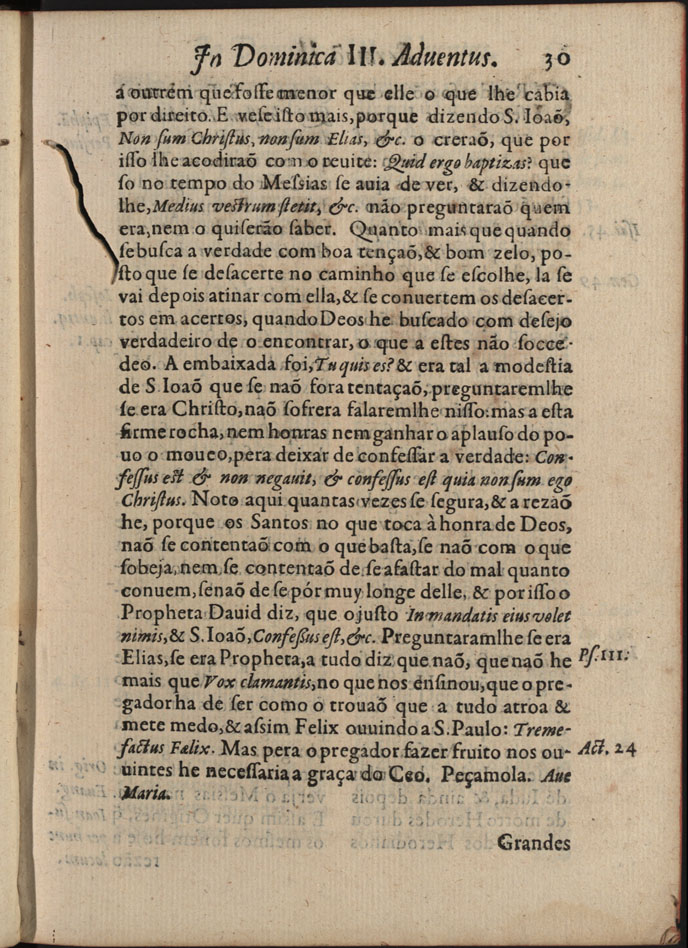 In Dominica III. Aduentus. 30
á outrém que fosse menor que elle o que lhe cabia
por direito. E vese isto mais, porque dizendo S. Ioaõ,
Non sum Christus, non sum Elias, &c. o creraõ, que por
isso lhe acodiraõ com o reuite: Quid ergo baptizas? que
so no tempo do Messias se auia de ver, & dizendo-
lhe, Medius vestrum stetit, &c. não preguntaraõ quem
era, nem o quiserão saber. Quanto mais que quando
se busca a verdade com boa tençaõ, & bom zelo, po-
sto que se desacerte no caminho que se escolhe, la se
vai depois atinar com ella, & se conuertem os desacer-
tos em acertos, quando Deos he buscado com desejo
verdadeiro de o encontrar, o que a estes não socce-
deo. A embaixada foi, Tu quis es? & era tal a modestia
de S Ioaõ que se naõ fora tentaçaõ, preguntaremlhe
se era Christo, naõ sofrera falaremlhe nisso: mas a esta
firme rocha, nem honras nem ganhar o aplauso do po-
uo o moueo, pera deixar de confessar a verdade: Con-
fessus est & non negauit, & confessus est quia non sum ego
Christus. Noto aqui quantas vezes se segura, & a rezaõ
he, porque os Santos no que toca à honra de Deos,
naõ se contentaõ com o que basta, se naõ com o que
sobeja, nem se contentaõ de se afastar do mal quanto
conuem, senaõ de se pór muy longe delle, & por isso o
Propheta Dauid diz, que o justo In mandatis eius volet
nimis, & S. Ioaõ, Confessus est, &c. Preguntaramlhe se era
Elias, se era Propheta, a tudo diz que naõ, que naõ he Ps. III.
mais que Vox clamantis, no que nos ensinou, que o pre-
gador ha de ser como o trouaõ que a tudo atroa &
mete medo, & assim Felix ouuindo a S. Paulo: Treme-
factus Fælix. Mas pera o pregador fazer fruito nos ou- Act. 24
uintes he necessaria a graça do Ceo. Peçamola. Aue
Maria.
Grandes